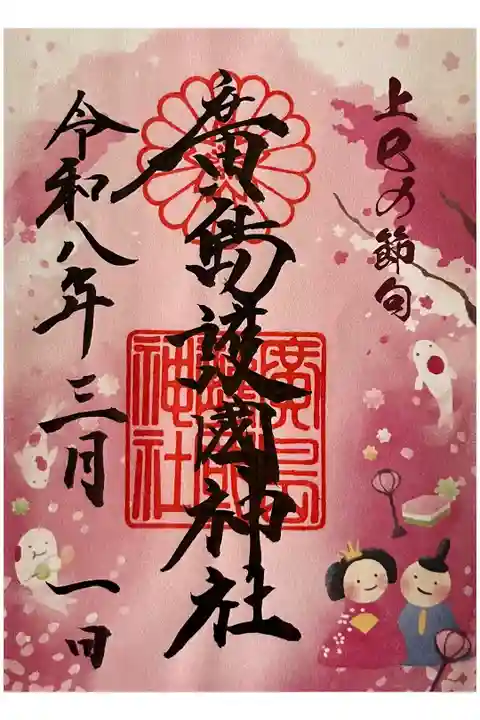 上巳の節句
廣島護國神社
令和八年三月一日
廣島
護國
神社